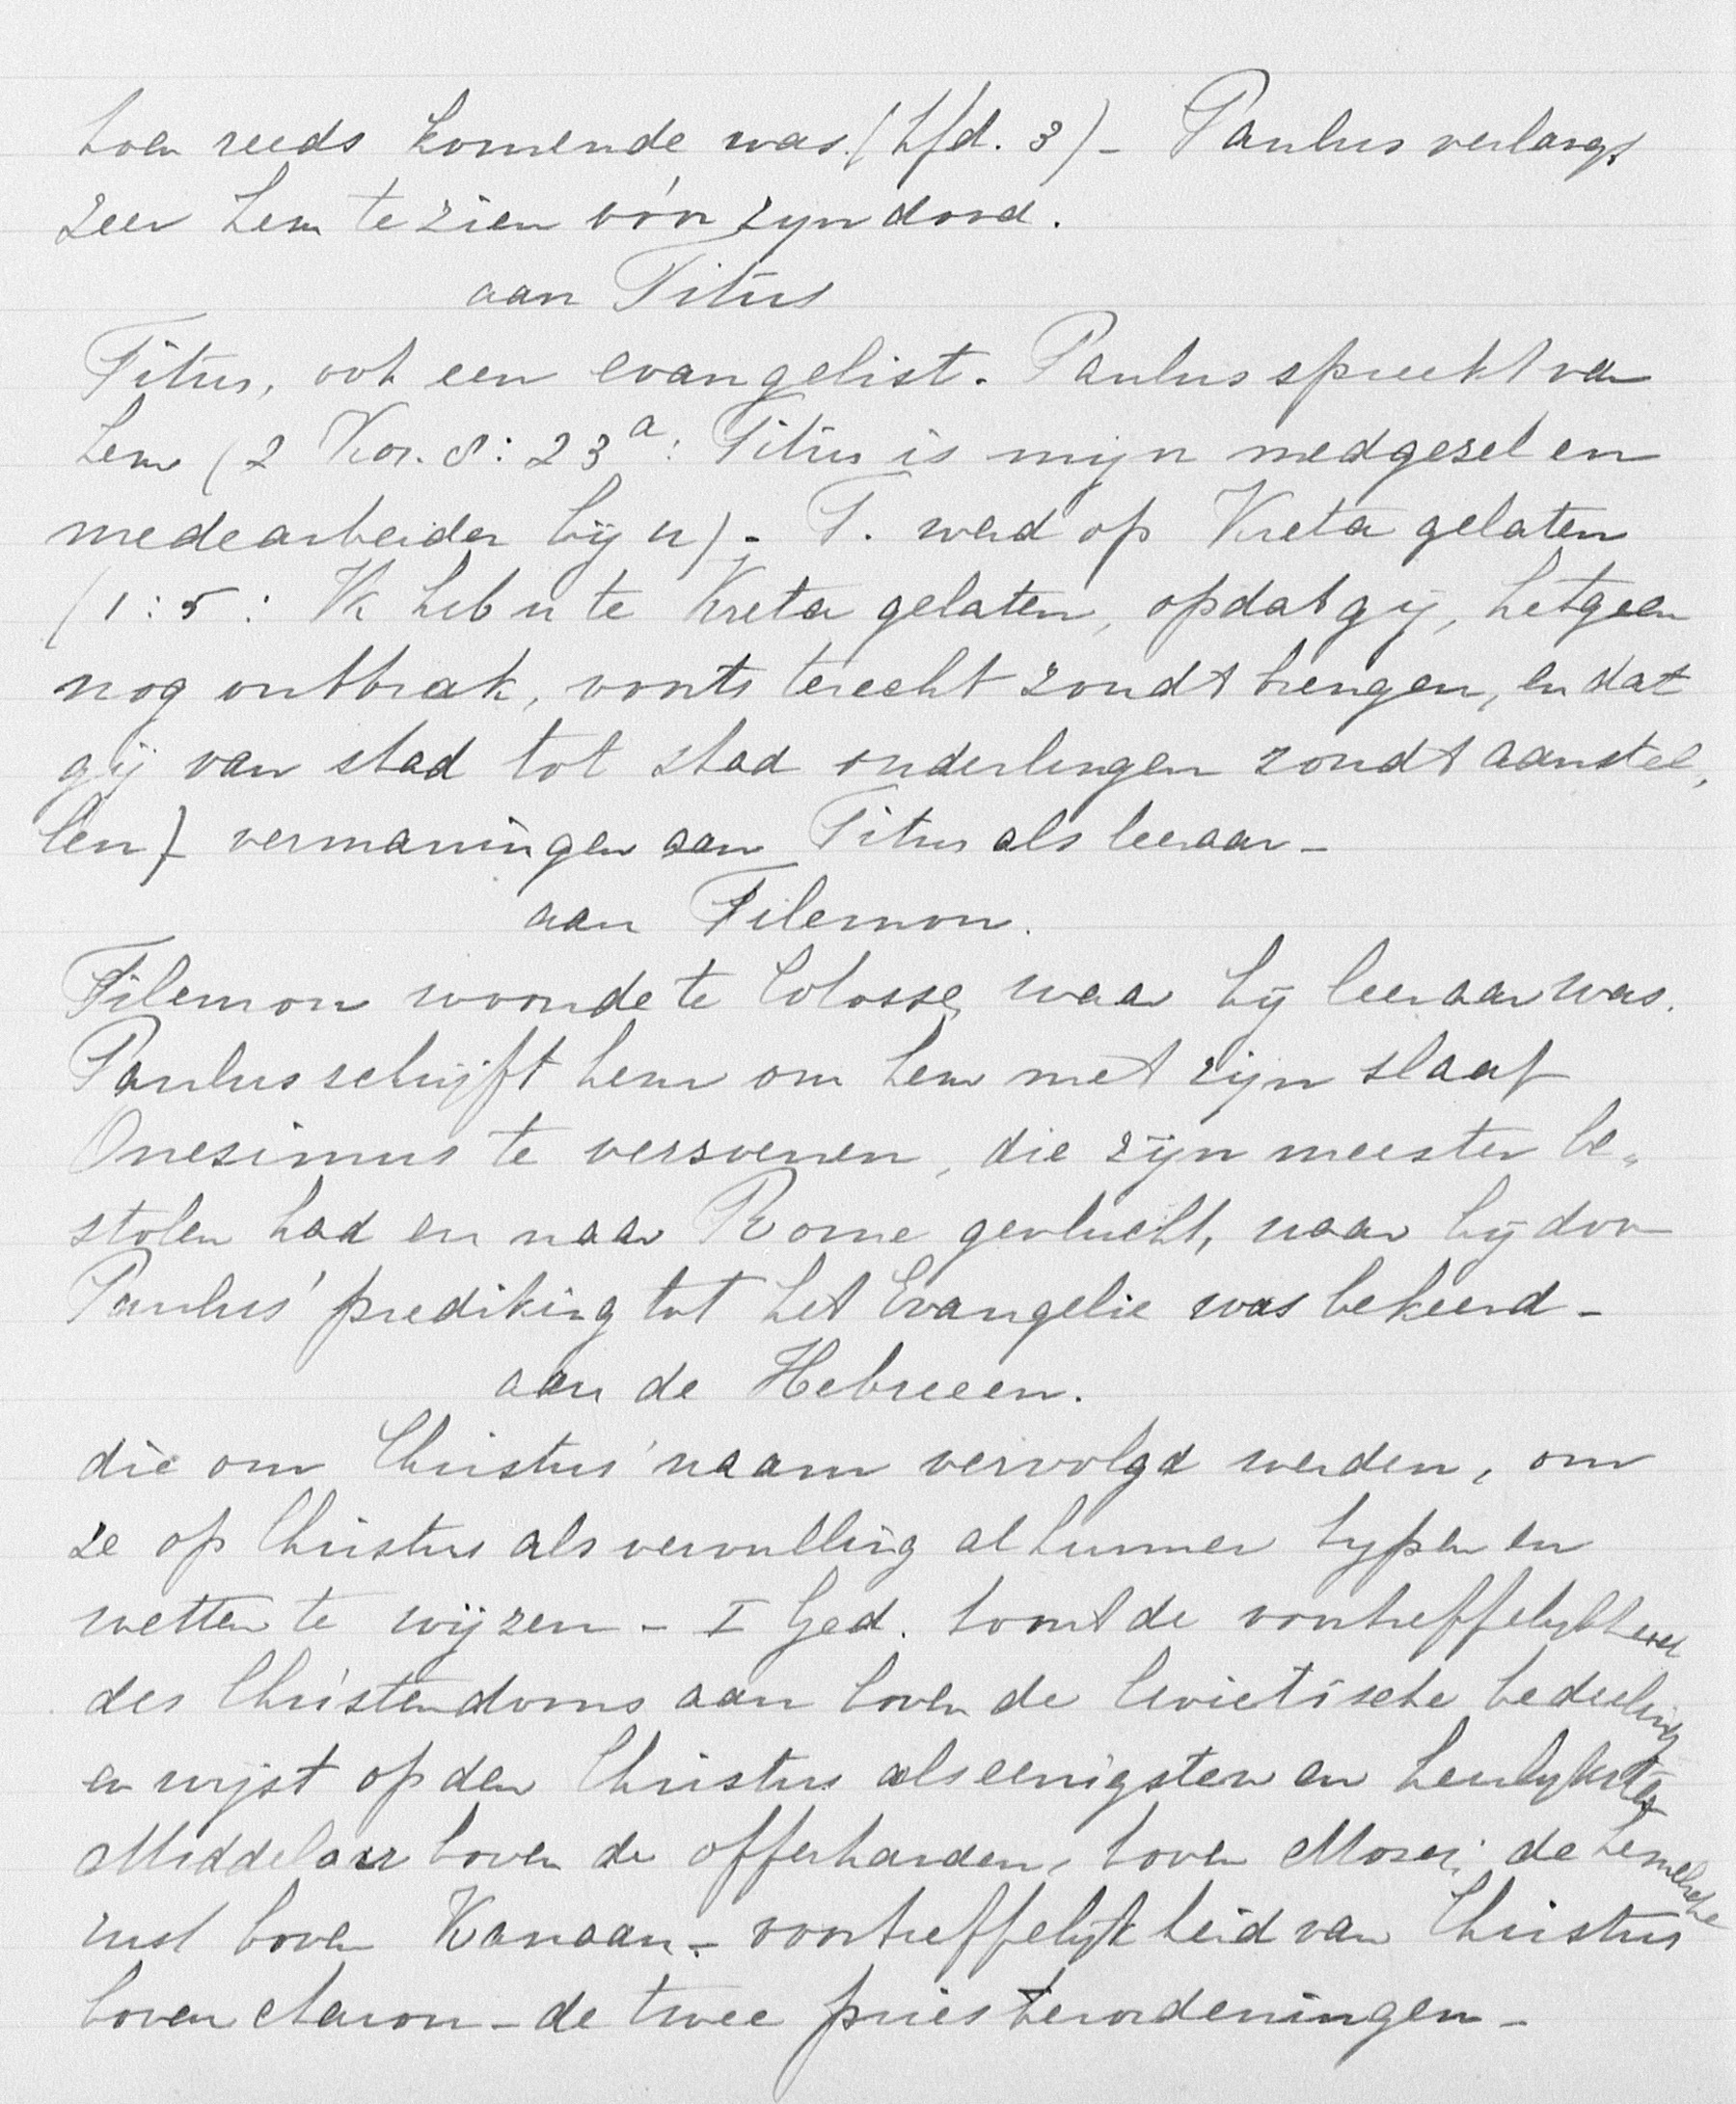 toen reeds komende was. (hfd. 3) - Paulus verlangt
zeer hem te zien vóór zyn dood.
aan Titus
Titus, ook een evangelist. Paulus spreekt van
hem (2 Kor. 8:23a: Titus is mijn medgezel en
medearbeider bij u) - T. werd op Kreta gelaten
(1:5: Ik heb u te Kreta gelaten, opdat gij, hetgeen
nog ontbrak, voorts terecht zoudt brengen, en dat
gij van stad tot stad ouderlingen zoudt aanstel,
len) - vermaningen aan Titus als leeraar -
aan Filemon.
Filemon woonde te Colosse, waar hij leeraar was.
Paulus schrijft hem om hem met zijn slaaf
Onesimus te verzoenen, die zijn meester be„
stolen had en naar Rome gevlucht, waar hij door
Paulus' prediking tot het Evangelie was bekeerd -
aan de Hebreeen.
die om Christus' naam vervolgd werden, om
ze op Christus als vervulling al hunner typen en
wetten te wijzen - I Ged. toont de voortreffelykheid
des Christendoms aan boven de Levietische bedeeling
en wijst op den Christus als eenigsten en heerlyksten
Middelaar boven de offerhanden, boven Mozes; de hemelsche
rust boven Kanaan - voortreffelijkheid van Christus
boven Aaron - de twee priesterordeningen -